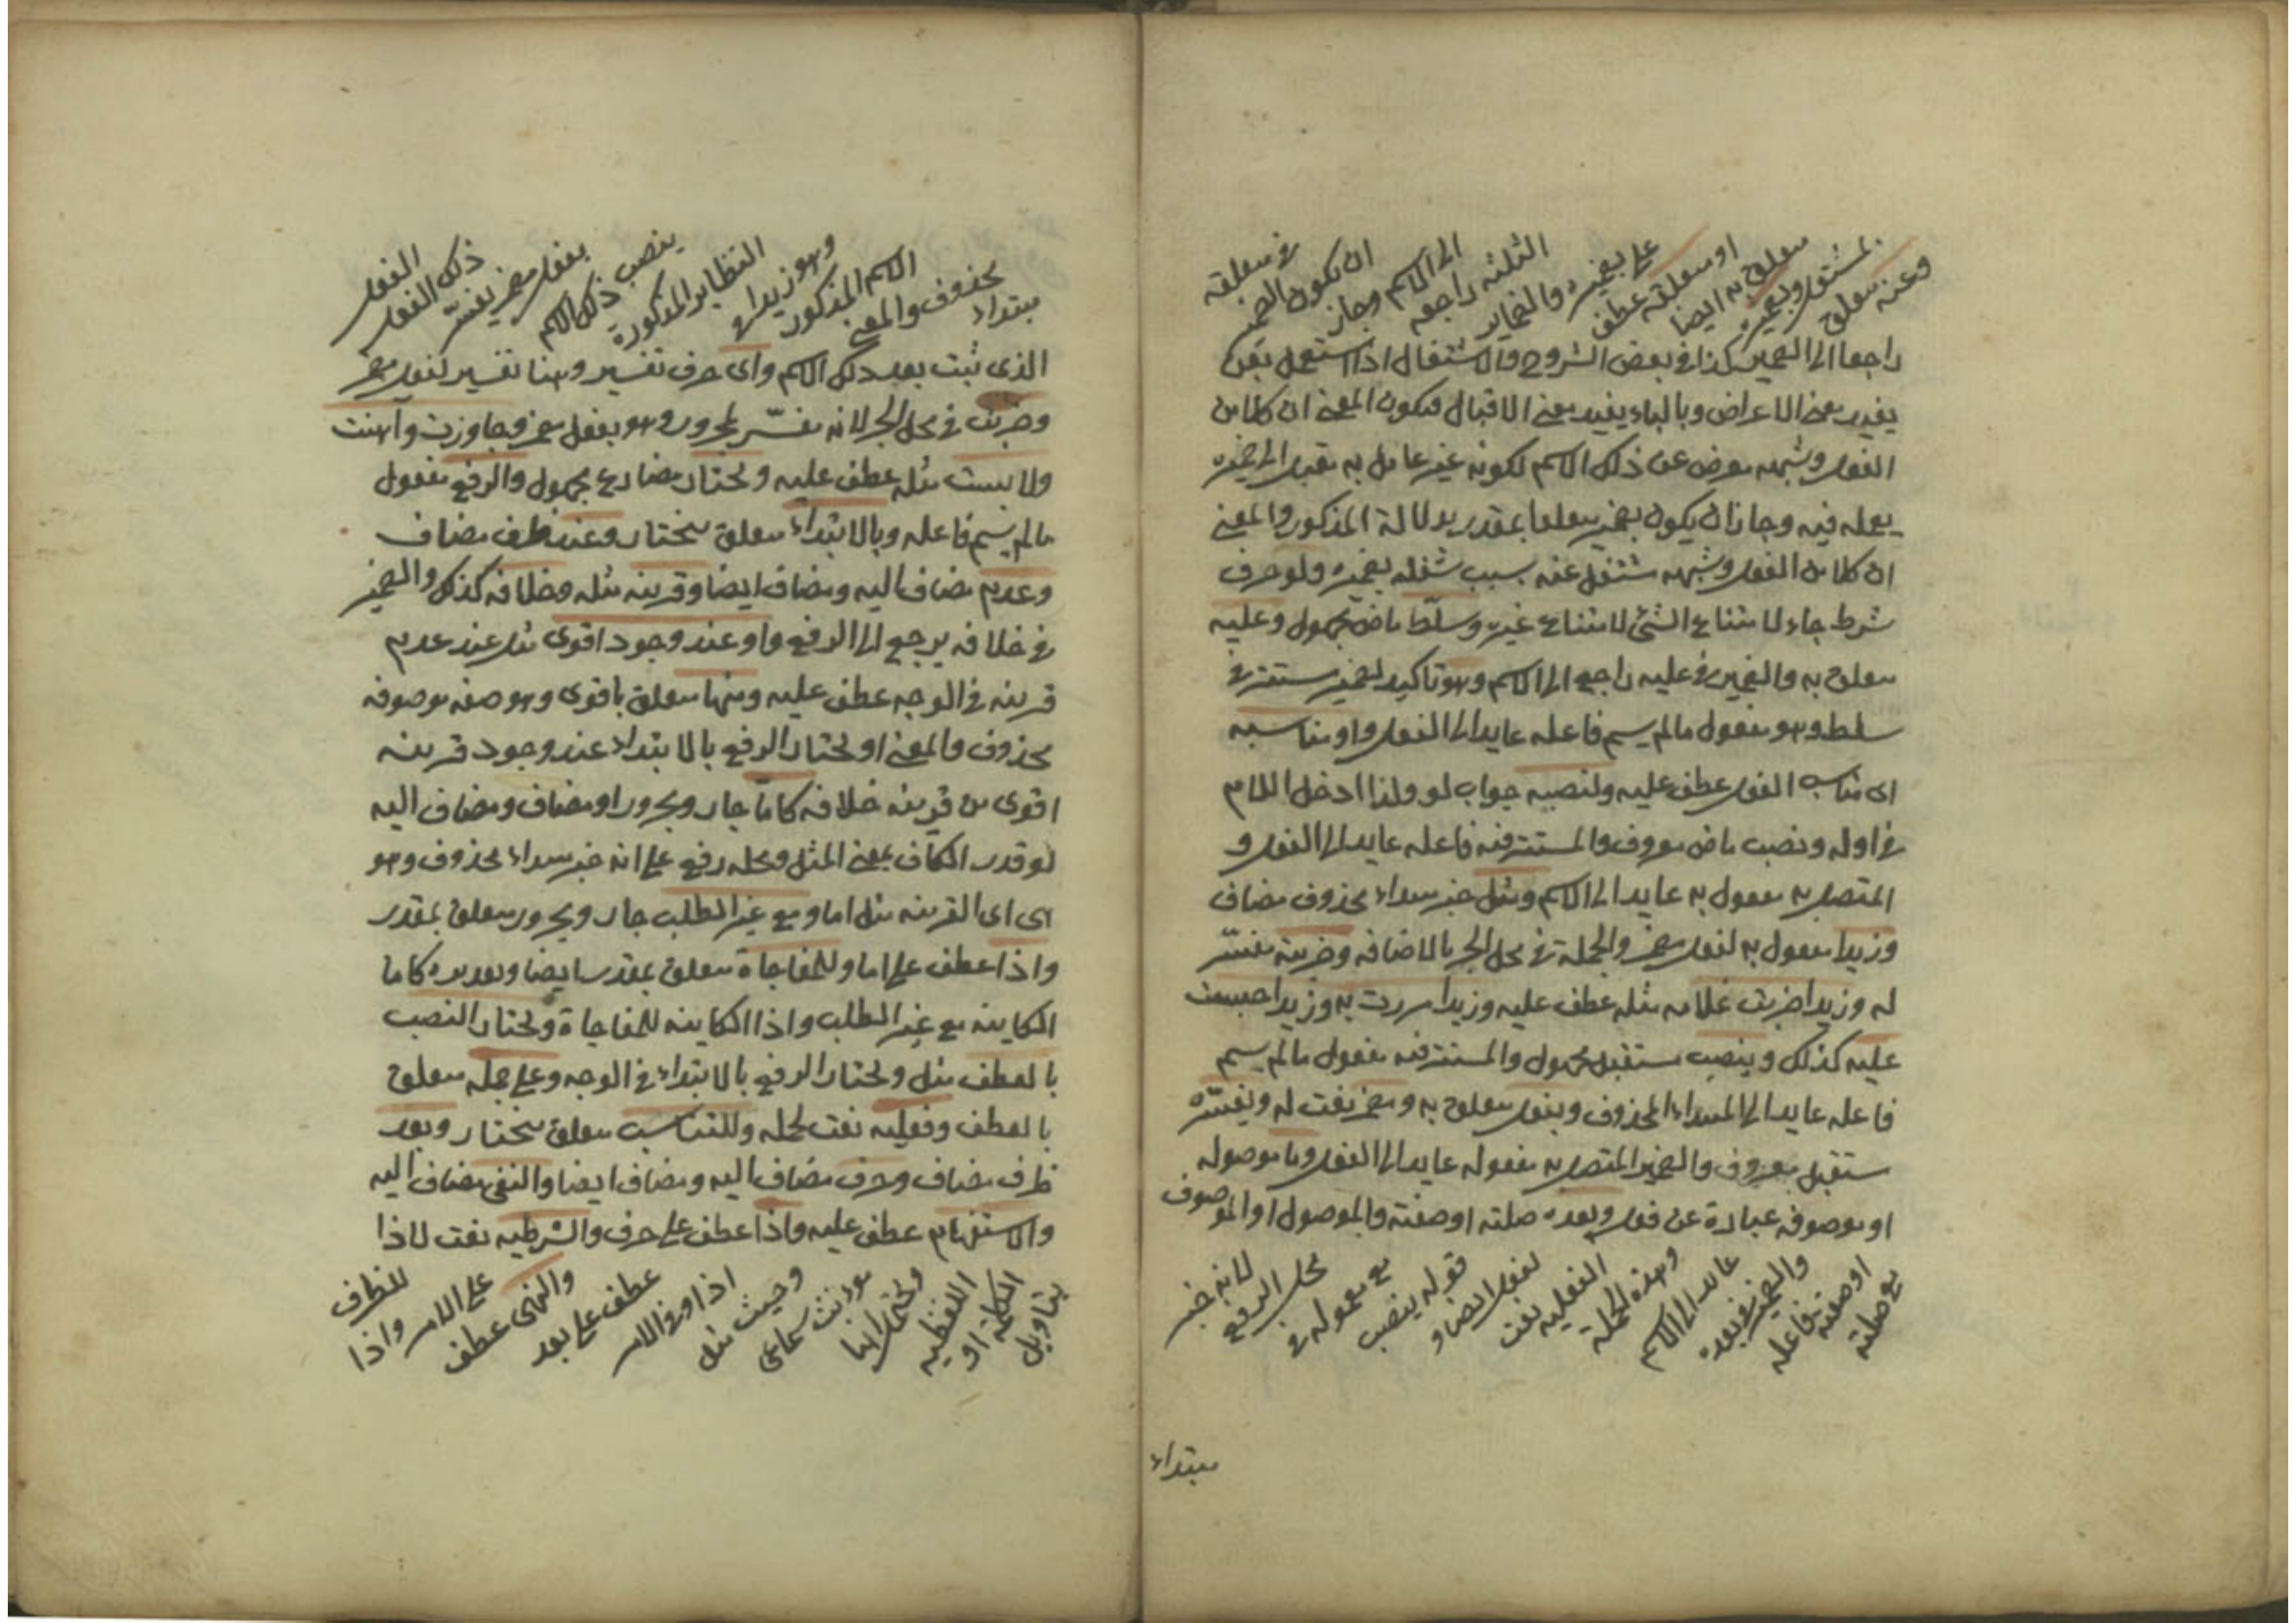 وعنه متعلق
بمشتغل وبضميره
متعلق به ايضا
او متعلقه عطف
على بضميره والضماير
الثلثه راجعه
الى الاسم وجاز
ان يكون الضمير
في متعلقه
راجعا الى الضمير كذا في بعض الشروح والاشتغال اذا استعمل بعن
يفيد معنى الاعراض وبالباء يفيد معنى الاقبال فيكون المعنى ان كلا من
الفعل وشبهه معرض عن ذلك الاسم لكونه غير عامل به مقبل الى ضميره
يعمله فيه وجاز ان يكون بضميره متعلقا بمقدر بدلالة المذكور والمعنى
ان كلا من الفعل وشبهه مشتغل عنه بسبب شغله بضميره ولو حرف
شرط جاء لامتناع الشئ لامتناع غيره وسلط ماض مجهول وعليه
متعلق به والضمير في عليه راجع الى الاسم وهو تاكيد لضمير مستتر في
سلط وهو مفعول مالم يسم فاعله عايد الى الفعل او مناسبه
اى مناسب الفعل عطف عليه ولنصبه جواب لو ولذا ادخل اللام
في اوله ونصب ماض معروف والمستتر فيه فاعله عايد الى الفعل و
المتصل به مفعول به عايد الى الاسم ومثل خبر مبتداء محذوف مضاف
وزيدا مفعول به لفعل مضمر والجملة في محل الجر بالاضافه وضربته مفسّر
له وزيدا ضربت غلامه مثله عطف عليه وزيدا مررت به وزيدا حبست
عليه كذلك وينصب مستقبل مجهول والمستتر فيه مفعول مالم يسم
فاعله عايد الى المبتداء المحذوف وبفعل متعلق به ومضمر نعت له ويفسّره
مستقبل معروف والضمير المتصل به مفعوله عايد الى الفعل وما موصوله
او موصوفه عبارة عن فعل وبعده صلته او صفته والموصول او الموصوف
مع صلته
او صفته فاعله
والضمير في بعده
عايد الى الاسم
وهذه الجملة
الفعليه نعت
لفعل ايضا و
قوله ينصب
مع معموله في
محل الرفع
لانه خبر
مبتداء
مبتداء
محذوف والمعنى
الاسم المذكور
وهو زيدا في
النظاير المذكورة
ينصب ذلك الاسم
بفعل مضمر يفسّر
ذلك الفعل
الفعل
الذى ثبت بعد ذلك الاسم واى حرف تفسير وهنا تفسير لفعل مضمر
وضربت في محل الجر لانه مفسّر لمجرور وهو بفعل مضمر وجاوزت واهنت
ولابست مثله عطف عليه ويختار مضارع مجهول والرفع مفعول
مالم يسم فاعله وبالابتداء متعلق بيختار وعند ظرف مضاف
وعدم مضاف اليه ومضاف ايضا وقرينه مثله وخلافه كذلك والضمير
في خلافه يرجع الى الرفع واو عند وجود اقوى مثل عند عدم
قرينه في الوجه عطف عليه ومنها متعلق باقوى وهو صفه موصوفه
محذوف والمعنى او يختار الرفع بالابتداء عند وجود قرينه
اقوى من قرينه خلافه كامّا جار ومجرور او مضاف ومضاف اليه
لو قدر الكاف بمعنى المثل ومحله رفع على انه خبر مبتداء محذوف وهو
هى اى القرينه مثل اما ومع غير الطلب جار ومجرور متعلق بمقدر
واذا عطف على اما وللمفاجاة متعلق بمقدر ايضا وتقديره كاما
الكاينه مع غير الطلب واذا الكاينه للمفاجاة ويختار النصب
بالعطف مثل ويختار الرفع بالابتداء في الوجه وعلى جمله متعلق
بالعطف وفعليه نعت لجمله وللتناسب متعلق بيختار وبعد
ظرف مضاف وحرف مضاف اليه ومضاف ايضا والنفى مضاف اليه
والاستفهام عطف عليه واذا عطف على حرف والشرطيه نعت لاذا
بتاويل
الكلمة او
اللفظيه
ويحتمل انها
مؤنث سماعى
وحيث مثل
اذا وفي الامر
عطف على بعد
والنهى عطف
على الامر واذا
للظرف